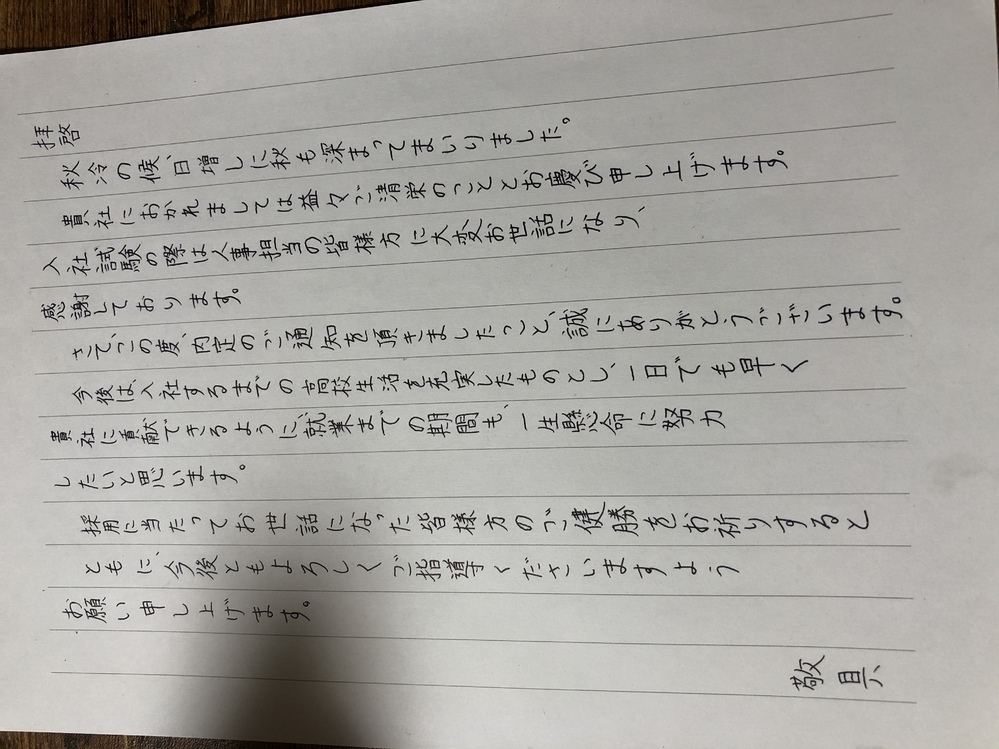 拝啓
秋冷の候、日増しに秋も深まってまいりました。
貴社におかれましては益々ご清栄のこととお慶び申し上げます。
入社試験の際は人事担当の皆様方に大変お世話になり、
感謝しております。
さて、この度、内定のご通知を頂きましたこと、誠にありがとうございます。
今後は、入社するまでの高校生活を充実したものとし、一日でも早く
貴社に貢献できるように、就業までの期間も、一生懸命に努力
したいと思います。
採用に当たってお世話になった皆様方のご健勝をお祈りすると
ともに、今後ともよろしくご指導くださいますよう
お願い申し上げます。
敬具